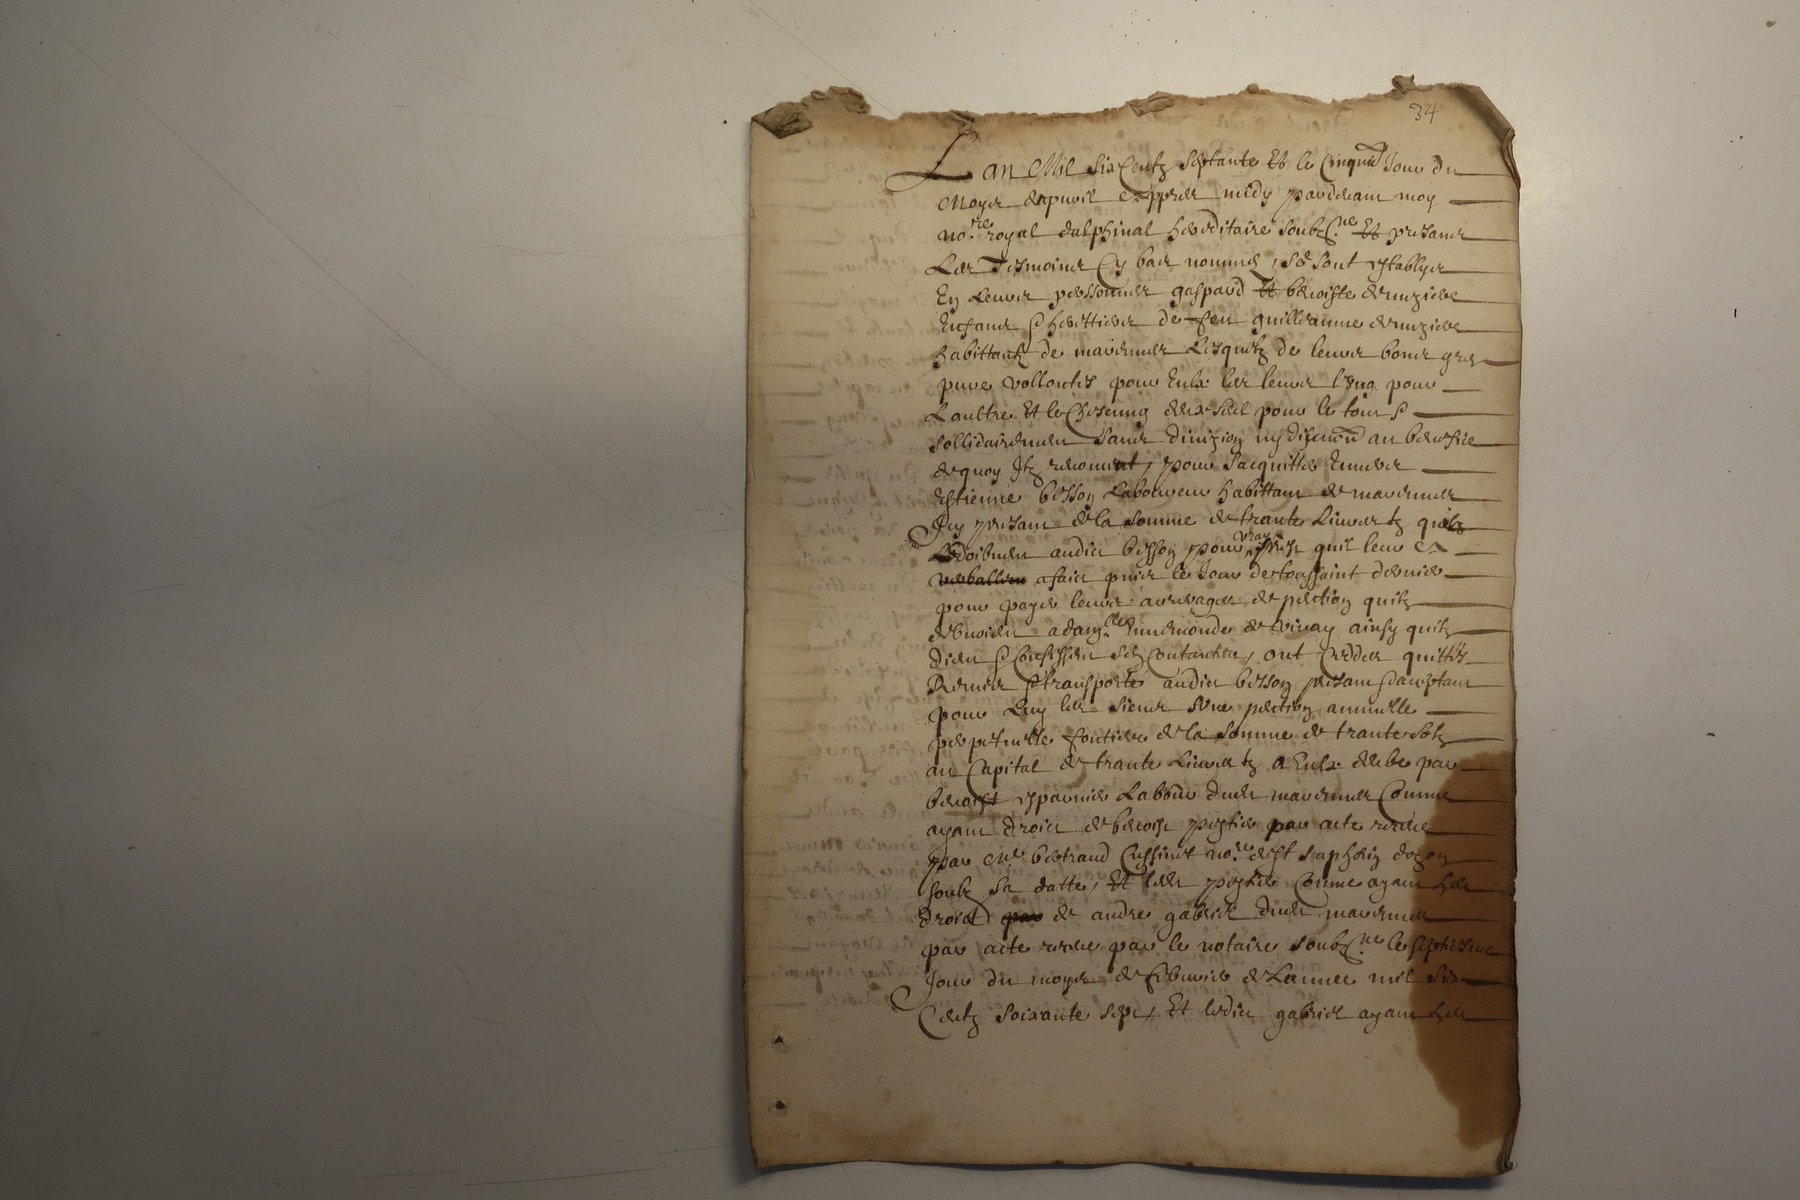 34
Lan Mil six Centz septante Et le Cinquie Jour du
Moyer dapvril Appres midy pardevant moy
no.re royal dalphinal hereditaire soubz.ne Et presans
Les Tesmoins Cy bas nommés, se sont establyes
En Leurs personnes gaspard Et benoiste
Enfans & herittiers de feu guilleaume
habittantz de Lesquelz de leurs bons gres
pure vollontés pour Eulx les leurs lung pour
Laultre Et le Chescung deulx seul pour le tout &
sollidairemen sans divizion ny discution au benefice
de quoy Ilz renoncent, pour sacquitter Envers
Estienne besson Laboureur habittant de
Icy presant de la somme de trante Livres tz quilz
Ledoibven audict besson pour vray prest quil leur en
a faict puis le Jour de toussaint dernier
pour payer leurs arrerages de pention quilz
debvoien a dam.lle de vinay ainsy quilz
dien & Confessen sen Contanten, ont Cedder quittés
Remis & transporté audict besson presant & acceptant
pour Luy les siens Une pention annuelle
perpetuelle fontiere de la somme de trante solz
au Capital de trante Livres tz a Eulx deube par
benoist Laboür dudit Comme
ayant droict de benoist par acte receue
par Me bertrand no.re de st saphorin dozon
soubz sa datte, Et Comme ayant les
droict par de andre gabriel dudit
par acte receue par le notaire soubz.ne le septiesme
Jour du moys de febvrier de Lannee mil six
Centz soixante sept, Et ledict gabriel ayant les